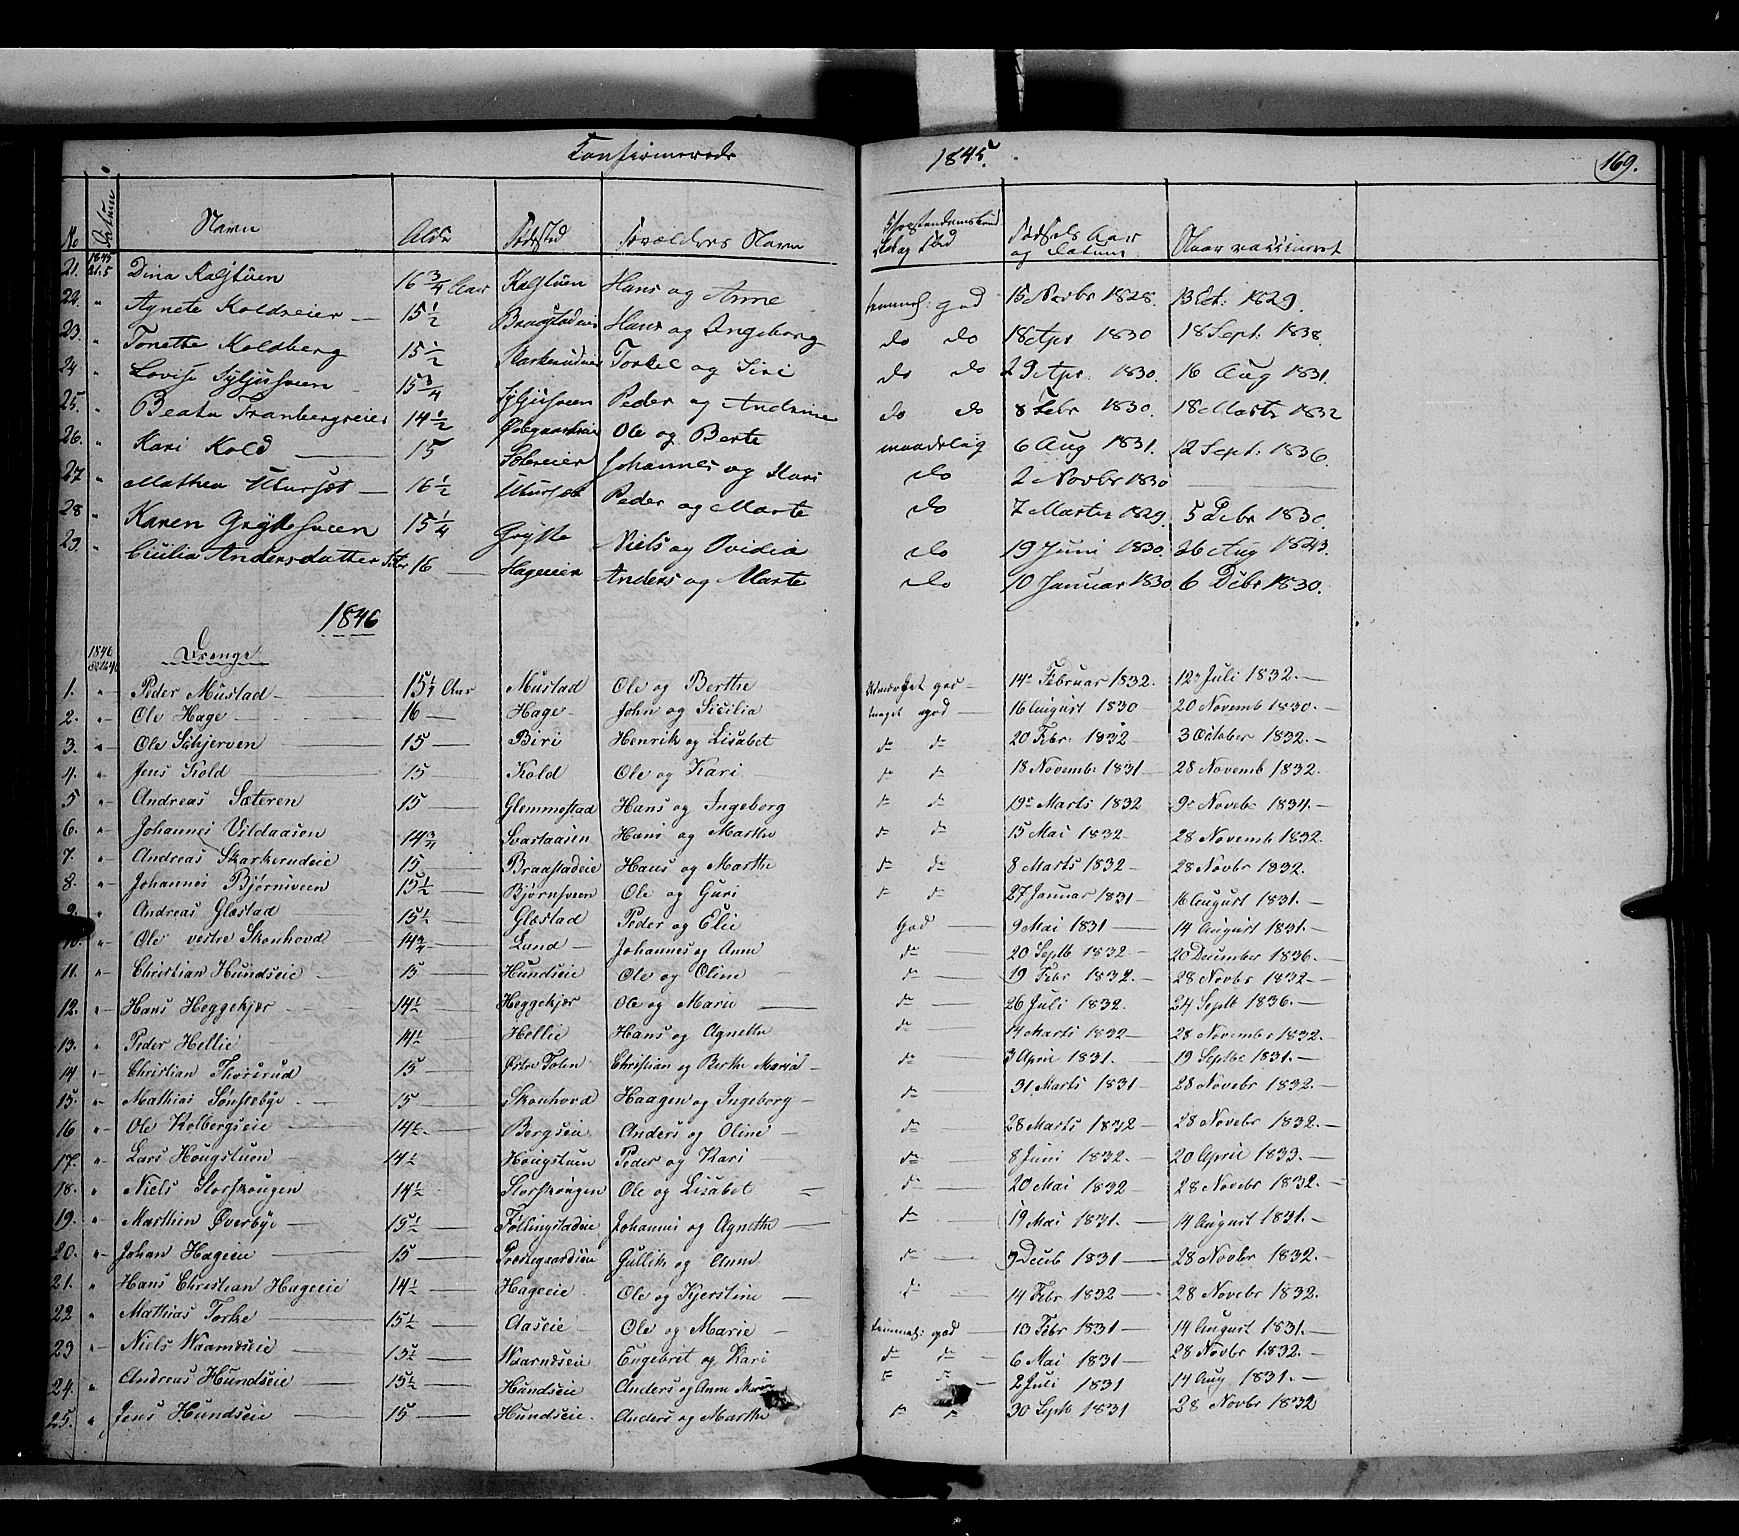 Confirmerede 1845. 169.
No Datum Navn Alder Fødested Forældres Navn Fødsels Aar og Datum Naar vaccineret
21. 1845 Dina 16 3/4 Aar Hans og Anne temmel: god 15 Novbr 1828. 13 1829.
22. " Agnete Koldseier — 15 1/2 Hans og Ingeborg do do 18 Apr 1830 18 Sept. 1838.
23. " Tonette Koldberg 15 1/2 Torkel og Siri do do 29 Apr. 1830. 16 Aug 1831.
24 " Lovise Syljusveen 15 3/4 Syljusveen Peder og Andrine do do 8 Febr 1830. 18 Marts 1832
25. " Beata Tranbergseier 14 1/2 Ole og Berte maadelig 6 Aug 1831. 12 Sept. 1836.
26. " Kari Kold — 15 Johannes og Kari do 2 Novbr 1830 —
27 " Mathea — 16 1/2 Peder og Marte do 7 Marts 1829. 5 1830.
28 " Karen 15 1/4 Grytte Niels og Ovidia do 19 Juni 1830. 26 Aug 1843.
29. " Andersdatter 16 — Hageeier Anders og Marte do 10 Januar 1830 6 Debr 1830.
1846
1846
Drenge
1. " Peder Mustad — 15 1/4 Aar Mustad Ole og Berthe god — 14 Februar 1832. 12 Juli 1832. —
2. " Ole Hage — 16 — Hage — John og Sicilia meget god — 16 August 1830 20 Novemb 1830. —
3. " Ole Schjerven — 15 — Biri Henrik og Lisabet do do 20 Febr. 1832 3 October 1832. —
4. " Jens Kold — 15 Kold Ole og Kari — do do 18 Novembr 1831 — 28 Novemb 1832.
5 " Andreas Sæteren 15 — Glemmestad Hans og Ingeborg do do 19 Marts 1832 9 Novebr 1834. —
6. " Johannes Vildaasen 14 3/4 Svartaasen Hans og Marthe do do 15 Mai 1832 — 28 Novemb 1832.
7. " Andreas Skarkerudeie 15 — Braastadeie Hans og Marthe do do 8 Marts 1832 — 28 Novbr 1832.
8. " Johannes Bjørnsveen 15 1/2 — Bjørnsveen Ole og Guri do do 27 Januar 1831 — 16 August 1831. —
9. " Andreas Glæstad 15 1/2 — Glæstad Peder og Elie God — 9 Mai 1831 — 14 August 1831. —
10. " Ole vestre Skonhovd 14 3/4 — Lund — Johannes og Anne do — 20 Septb 1832. — 20 December 1836. —
11. " Christian Hundseie — 15 — Hundseie Ole og Oline do — 19 Febr 1832. — 28 Novbr 1832 —
12. " Hans Heggekjær 14 1/2 — Heggekjær Ole og Marie — do — 26 Juli 1832. 24 Septb 1836. —
13. " Peder Hellie 14 1/2 — Hellie Hans og Agnethe do — 14 Marts 1832 — 28 November 1832.
14 " Christian Thorsrud 15 — Østre Toten Christian og Berthe Maria — do — 3 April 1831. — 19 Septbe 1831. —
15. " Mathias Sønstebye — 15 — Skonhovd Haagen og Ingeborg — do — 31 Marts 1831 — 28 Novebr 1832. —
16 " Ole Kolbergseie — 14 1/2 — Bergseie Anders og Oline — do — 28 Marts 1832 — 28 Novebr 1832. —
17. " Lars Hougstuen — 14 1/2 Hougstuen Peder og Kari do — 8 Juni 1832. — 20 April 1833. —
18. " Niels Storskougen 14 1/2 Storskougen Ole og Lisabet do — 20 Mai 1832 — 28 Novebr 1832. —
19. " Marthin Øverbye — 15 1/2 — Føllingstadeie Johannes og Agnethe — do — 19 Mai 1831. — 14 August 1831. —
20. " Johan Hageeie — 15 — Præstegaardseie Gullik og Anne do — 9 Deceb 1831 — 28 Novbr 1832.
21. " Hans Christian Hageeie 14 1/2 — Hageeie Ole og Kjerstine — do — 14 Febr 1832 — 28 Novebr 1832.
22 " Mathias Torke — 15 1/2 — Aaseie — Ole og Marie — temmel: god — 13 Febr 1831 — 14 August 1831. —
23 " Niels Waarndseie — 15 1/2 — Waarndseie Engebret og Kari do do — 6 Mai 1831 — 28 Novbr 1832. —
24. " Andreas Hundseie — 15 1/2 — Hundseie Anders og Anne Marie do 2 Juli 1831 14 Aug 1831. —
25. " Jens Hundseie — 15 — Hundseie. Anders og Marthe do do 30 Septb 1831 28 Novbr 1832